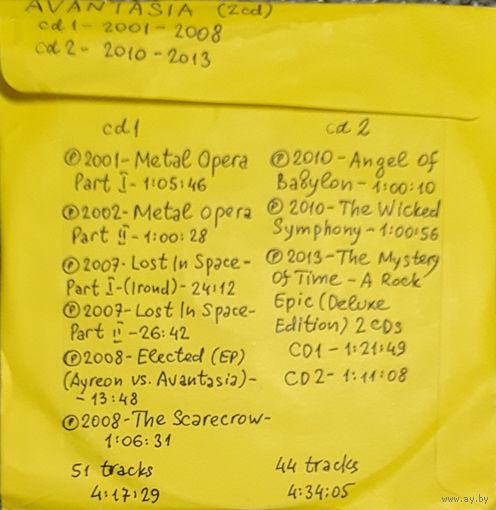 AVANTASIA (2cd)
cd1 - 2001 - 2008
cd2 - 2010 - 2013
cd1
℗2001 - Metal Opera
Part I - 1:05:46
℗2002 - Metal Opera
Part II - 1:00:28
℗2007 - Lost In Space -
Part I - (Irond) - 24:12
℗2007 - Lost In Space -
Part II - 26:42
℗2008 - Elected (EP)
(Ayreon vs. Avantasia) -
- 13:48
℗2008 - The Scarecrow -
1:06:31
51 tracks
4:17:29
cd 2
℗2010 - Angel Of
Babylon - 1:00:10
℗2010 - The Wicked
Symphony - 1:00:56
℗2013 - The Mystery
Of Time - A Rock
Epic (Deluxe
Edition) 2 CDs
CD1 - 1:21:49
CD2 - 1:11:08
44 tracks
4:34:05
www.ay.by